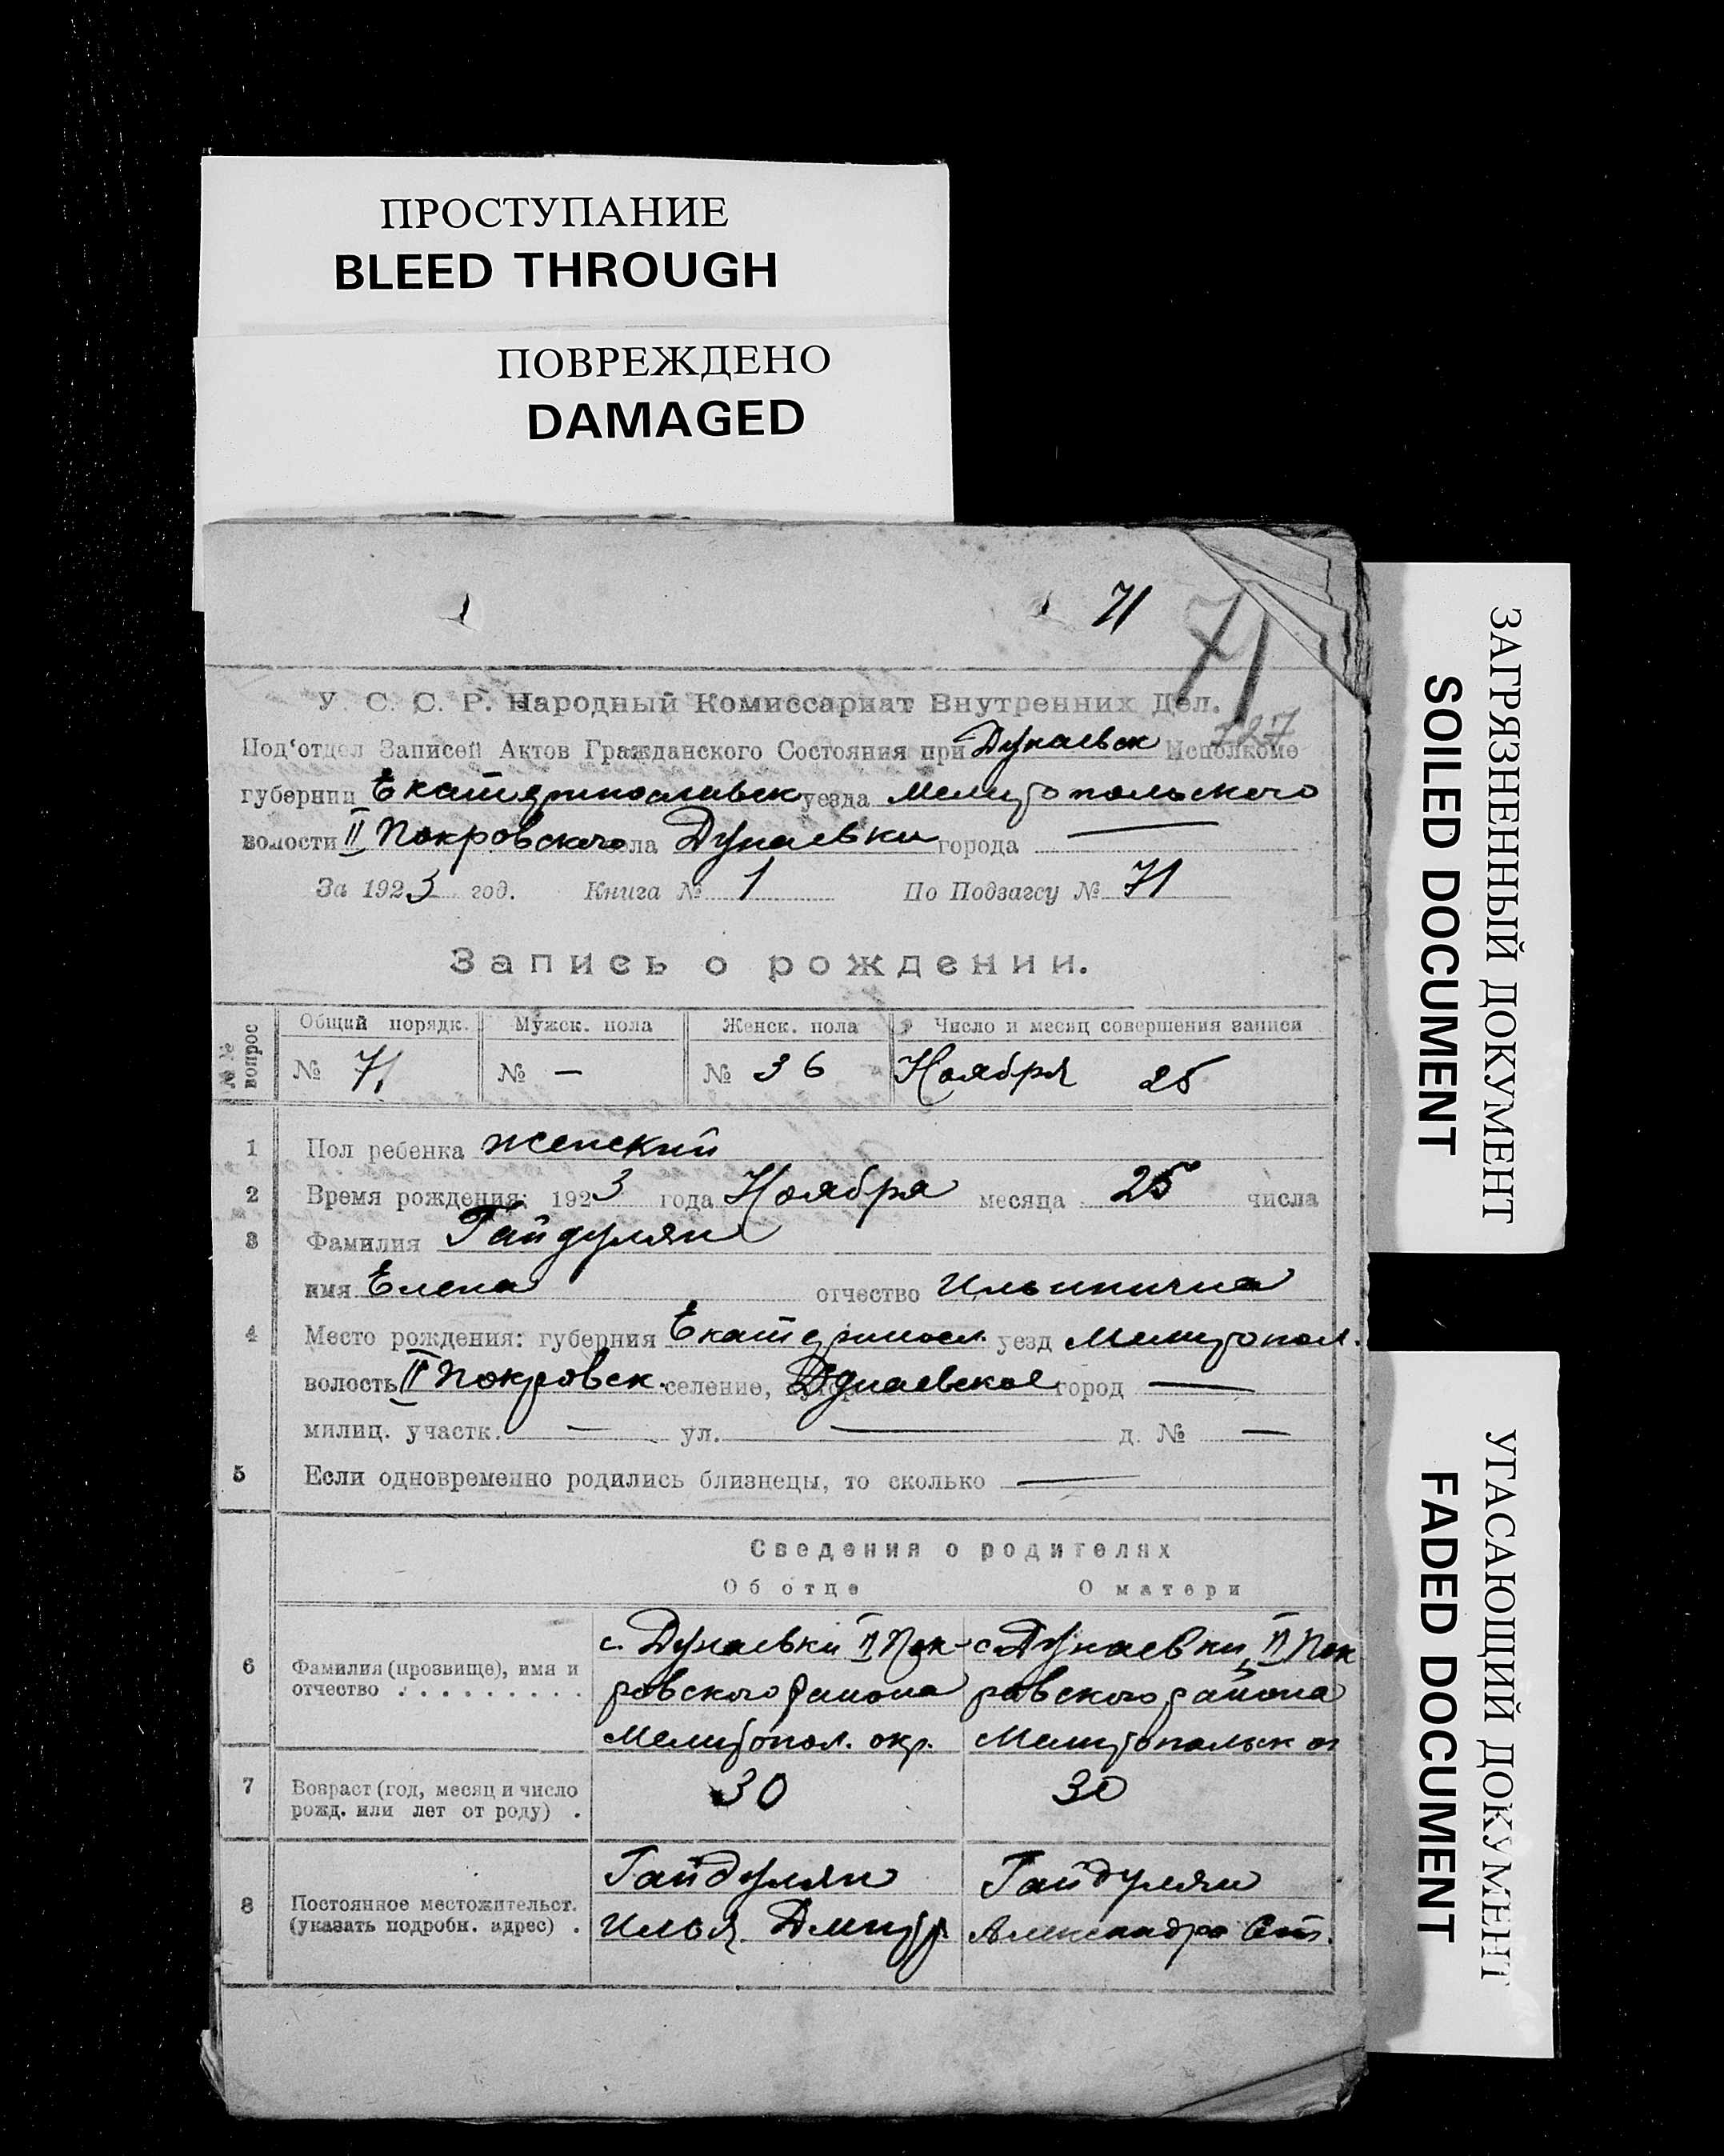 ПРОСТУПАНИЕ
BLEED THROUGH
ПОВРЕЖДЕНО
DAMAGED
71
71
727
У. С. С. Р. Народный Комиссариат Внутренних Дел.
Под'отдел Записей Актов Гражданского Состояния при Дунаевск Исполкоме
губернии Екатеринославск уезда Мелитопольского
волости II Покровского села Дунаевки города —
За 1923 год. Книга № 1 По Подзагсу № 71
Запись о рождении.
№№ вопрос
Общий порядк. Мужск. пола Женск. пола Число и месяц совершения записи
№ 71 № — № 36 Ноября 25
1 Пол ребенка женский
2 Время рождения: 1923 года Ноября месяца 25 числа
3 Фамилия Гайдулян
имя Елена отчество Ильинична
4 Место рождения: губерния Екатериносл. уезд Мелитопол.
волость II Покровск. селение, Дунаевское город —
милиц. участк. — ул. — д. № —
5 Если одновременно родились близнецы, то сколько —
Сведения о родителях
Об отце О матери
6 Фамилия (прозвище), имя и отчество . . . . . . . . .
с. Дунаевки II Пок-
ровского района
Мелитопол. окр.
с Дунаевки, II Пок
ровского района
Мелитопольск ок
7 Возраст (год, месяц и число рожд. или лет от роду) . 30 30
8 Постоянное местожительст. (указать подробн. адрес) .
Гайдулян
Илья Дмитр.
Гайдулян
Александра Ст.
ЗАГРЯЗНЕННЫЙ ДОКУМЕНТ
SOILED DOCUMENT
УГАСАЮЩИЙ ДОКУМЕНТ
FADED DOCUMENT